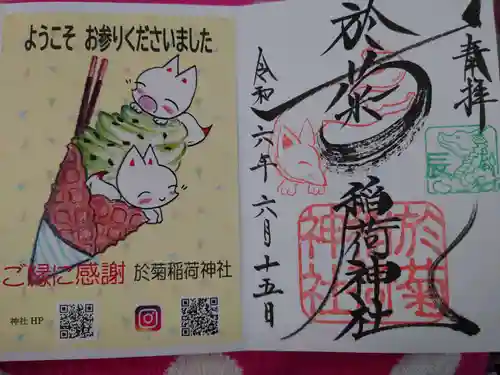 ようこそ お参りくださいました
ご縁に感謝 於菊稲荷神社
神社 HP
奉拝
於菊
稲荷神社
令和六年六月十五日
於菊
稲荷
神社
辰